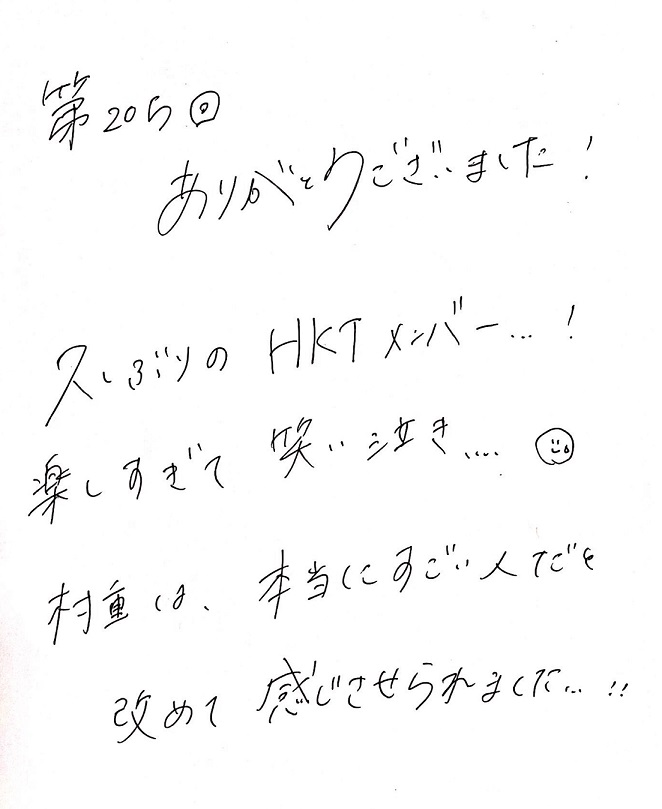 第205回
ありがとうございました!
久しぶりの HKTメンバー…!
楽しすぎて 笑い泣き....
村重は、本当にすごい人だと
改めて 感じさせられました…!!